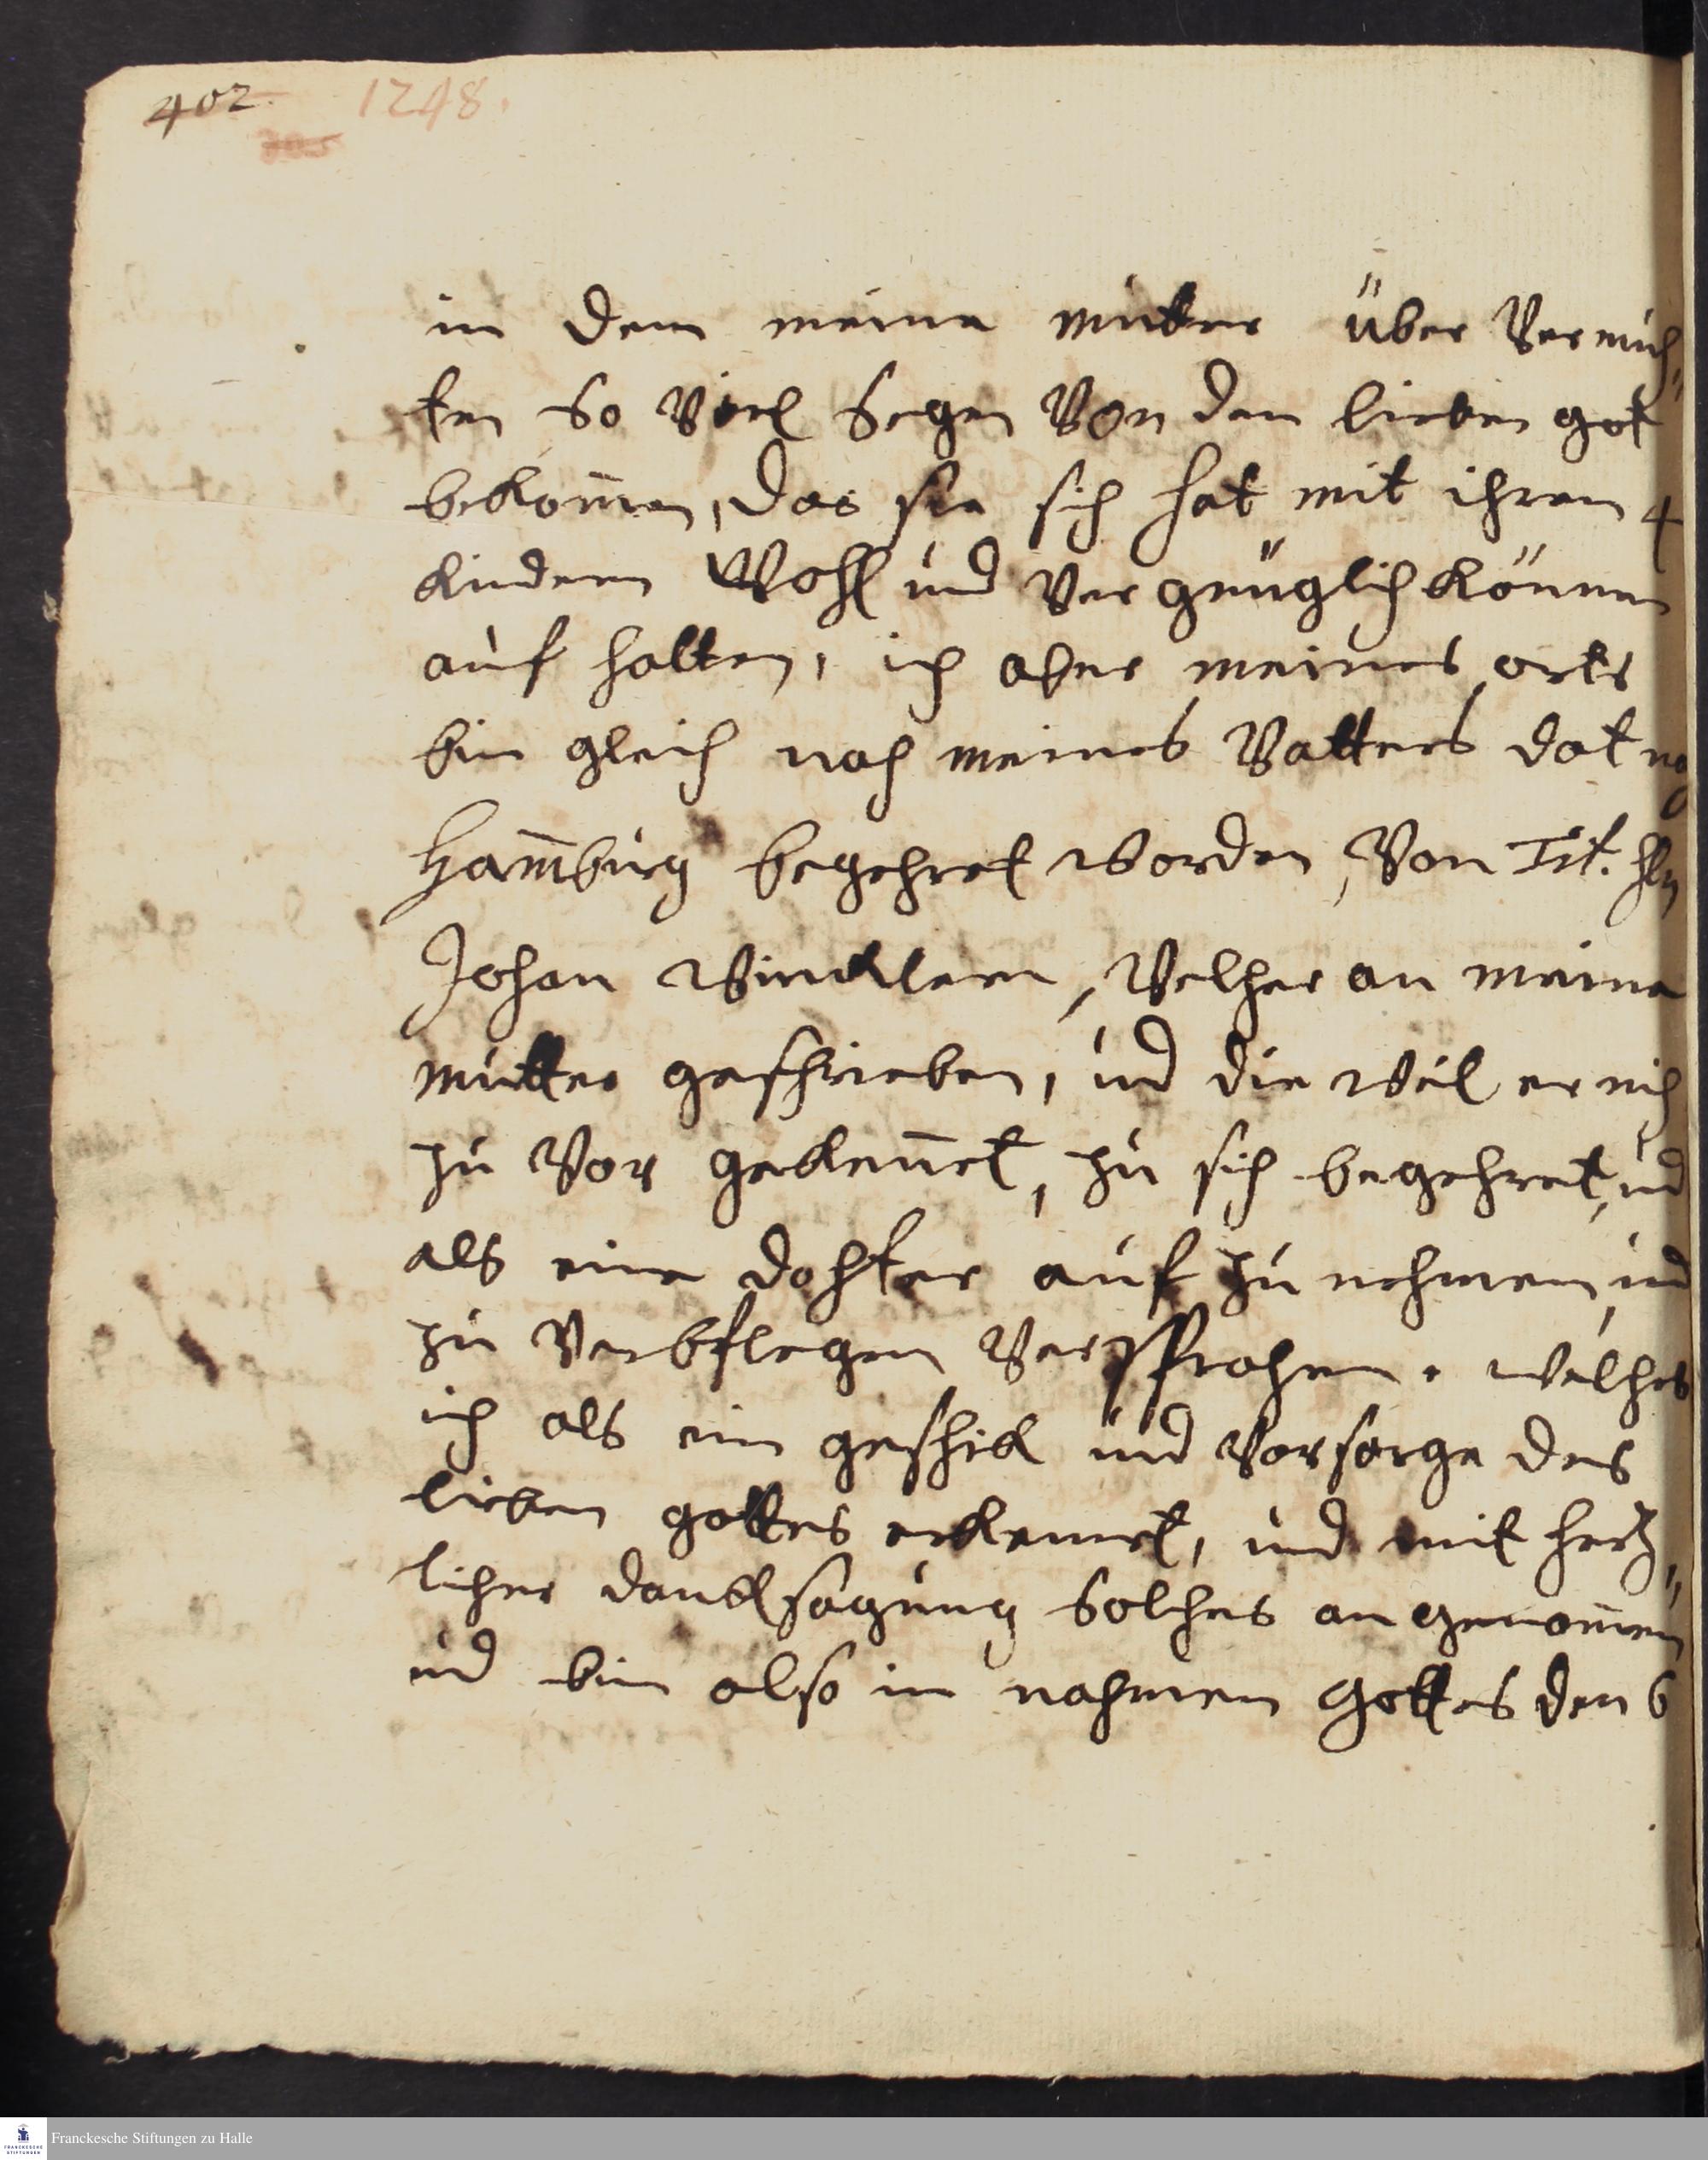 402. 1248.
in dem meine mutter über Vermuh⸗
ten so Viel segen Von dem lieben got
bekom̄en, das sie sich hat mit ihren 4
kindern Wohl und Vergnüglich können
auf halten, ich aber meines orts
bin gleich nach meines Vatters dot
Ham̄burg begehret worden, Von Tit. Hln
Johan Wincklern, Welcher an meine
mutter geschrieben, und die weil er mich
zu Vor gekennet, zu sich begehret, und
als eine dochter auf zu nehmen, und
zu Verbflegen Versprochen. welches
ich als ein geschick und Vorsorge des
lieben gottes erkennet, und mit hertz⸗
licher dancksagung solches an genom̄en
und bin also in nahmen Gottes den 6
Franckesche Stiftungen zu Halle
FRANCKESCHE
STIFTUNGEN